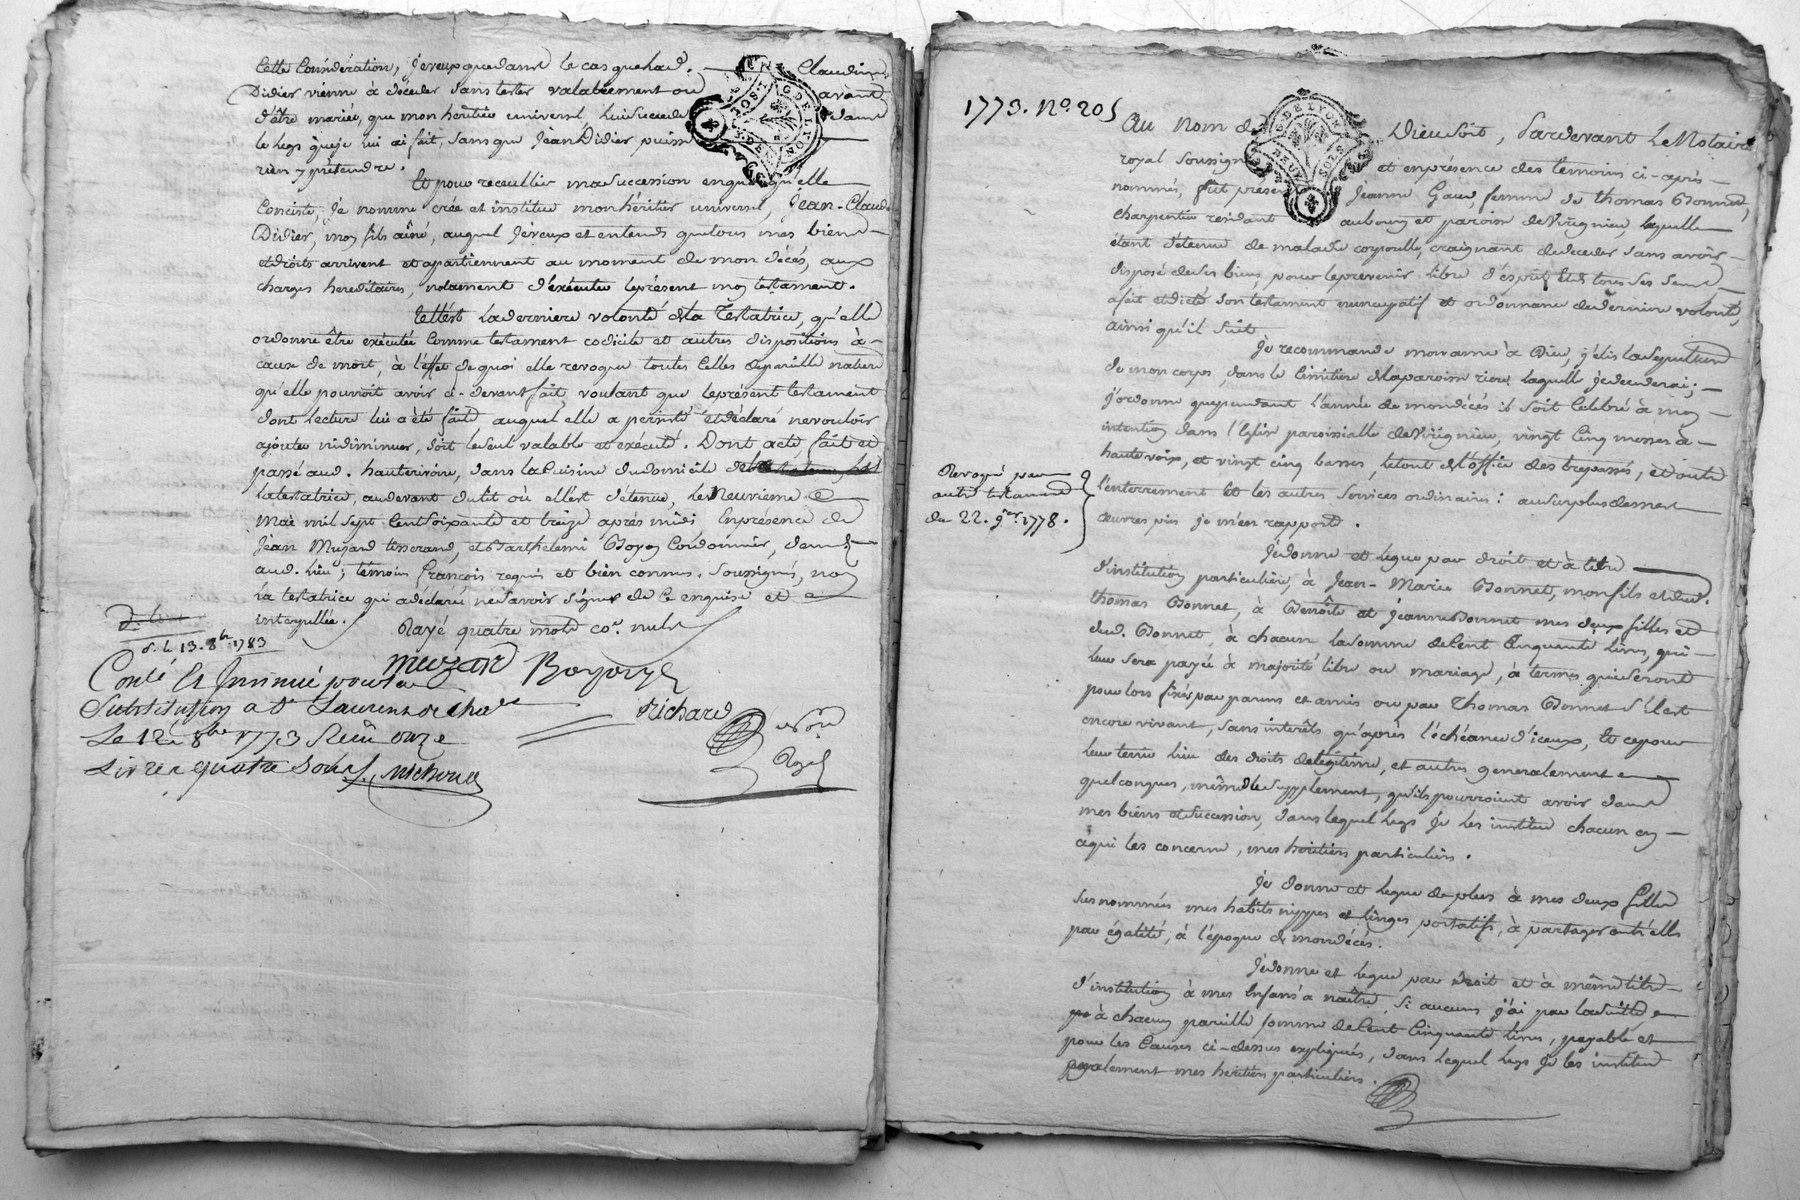 Cette Considération, je veux que dans le cas que lad. Claudine
Didier vienne à décéder sans tester valablement ou avant
d'être mariée, que mon héritier universel lui succede dans
le legs que je lui ai fait, sans que Jean Didier puisse
rien y prétendre.
Et pour receuillir ma succession en quoi qu'elle
Consiste, je nomme crée et institue mon héritier universel, Jean-Claude
Didier, mon fils aîné, auquel je veux et entends que tous mes biens
et droits arrivent et apartiennent au moment de mon décés, aux
charges hereditaires, notament d'exécuter le présent mon testament.
Telle est la derniere volonté de la Testatrice, qu'elle
ordonne être exécutée comme testament codicile et autres dispositions à
cause de mort, à l'effet de quoi elle revoque toutes celles de pareille nature
qu'elle pourroit avoir ci-devant fait, voulant que le présent testament
dont lecture lui a été faite, auquel elle a persisté et déclaré ne vouloir
ajouter ni diminuer, soit le seul valable et exécuté. Dont acte fait et
passé aud. hauterivoire, dans la Cuisine du domicile de
la testatrice, au devant du lit où elle est détenue, le Neuvieme
Mai mil sept Cent Soixante et treize après midi, En présence de
Jean Muzard tisserand, et Barthelemi Boyon Cordonnier, dem.t
aud. lieu; témoins françois requis et bien connus. Soussignés, non
la testatrice qui a déclaré ne savoir signer de ce enquise et
interpellée.
Rayé quatre mots co.e nuls
d. le 13. 8bre 1783
Muzard Boyon
Conlé Et Insinué pour la
Substitution a St Laurent de Cha.t
Richard
Le 12e 8bre 1773 Reçu onze
Livres quatre sols. Michoud
Not.re
Royal
1773. No. 205
G. DE LYON
NEUF
SOLS
Au Nom de Dieu soit, Pardevant Le Notaire
royal Soussigné et en présence des témoins ci-après
nommés, fut présente Jeanne Gau, femme de Thomas Bonnet,
Charpentier résidant au bourg et paroisse de Virignieu, laquelle
étant détenue de maladie corporelle, craignant de déceder sans avoir
disposé de ses biens, pour le prévenir, libre d'ésprit et de tous ses sens
a fait et dicté son testament nuncupatif et ordonnance de derniere volonté,
ainsi qu'il suit
Je recommande mon ame à Dieu, j'élis la sepulture
de mon corps, dans le cimitière de la paroisse riere laquelle je decederai;
j'ordonne que pendant l'année de mon décés il soit célébré à mon
intention dans l'Eglise paroissialle de Virignieu, vingt cinq messes à
haute voix, et vingt cinq basses, le tout de l'office des trépassés, et outre
l'enterrement et les autres services ordinaires: au surplus de mes
œuvres pies je m'en rapporte.
Revoqué par
autre testament
du 22. 9bre 1778.
Je donne et legue par droit et à titre
d'institution particulière, à Jean-Marie Bonnet, mon fils et dud.
Thomas Bonnet, à Benoîte et Jeanne Bonnet mes deux filles et
dud. Bonnet, à chacun la somme de Cent Cinquante livres, qui
leur sera payée à majorité libre ou mariage, à termes qui seront
pour lors fixés par parens et amis ou par Thomas Bonnet s'il est
encore vivant, sans interêts qu'après l'échéance d'iceux, Et ce pour
leur tenir lieu des droits de légitime, et autres generalement
quelconques, même de supplement, qu'ils pourroient avoir dans
mes biens et succession, dans lequel legs je les institue chacun en
ce qui les concerne, mes heritiers particuliers.
Je donne et legue de plus à mes deux filles
sus nommées mes habits nippes et linges portatifs, à partager entr'elles
par égalité, à l'époque de mon décés.
Je donne et legue par droit et à même titre
d'institution à mes Enfans à naître, si aucuns j'ai par la suite
à chacun pareille somme de Cent Cinquante livres, payable et
pour les Causes ci-dessus expliquées, dans lequel legs je les institue
egalement mes heritiers particuliers.